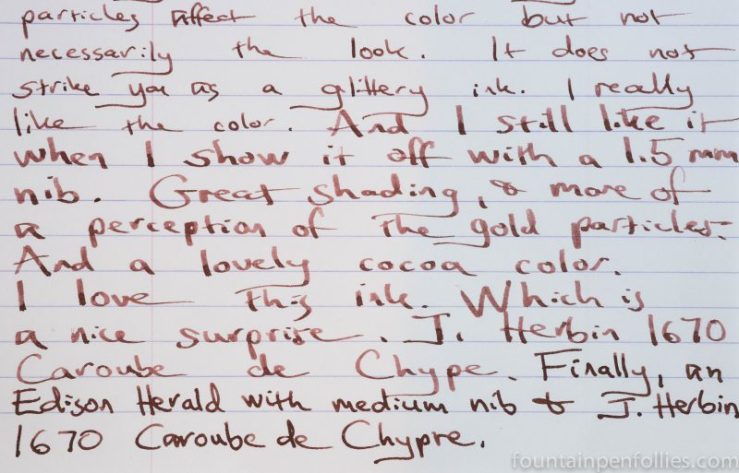 particles affect the color but not
necessarily the look. It does not
strike you as a glittery ink. I really
like the color. And I still like it
when I show it off with a 1.5 mm
nib. Great shading, & more of
a perception of the gold particles.
And a lovely cocoa color.
I love this ink. Which is
a nice surprise. J. Herbin 1670
Caroube de Chype. Finally, an
Edison Herald with medium nib & J. Herbin
1670 Caroube de Chypre.
fountainpenfollies.com